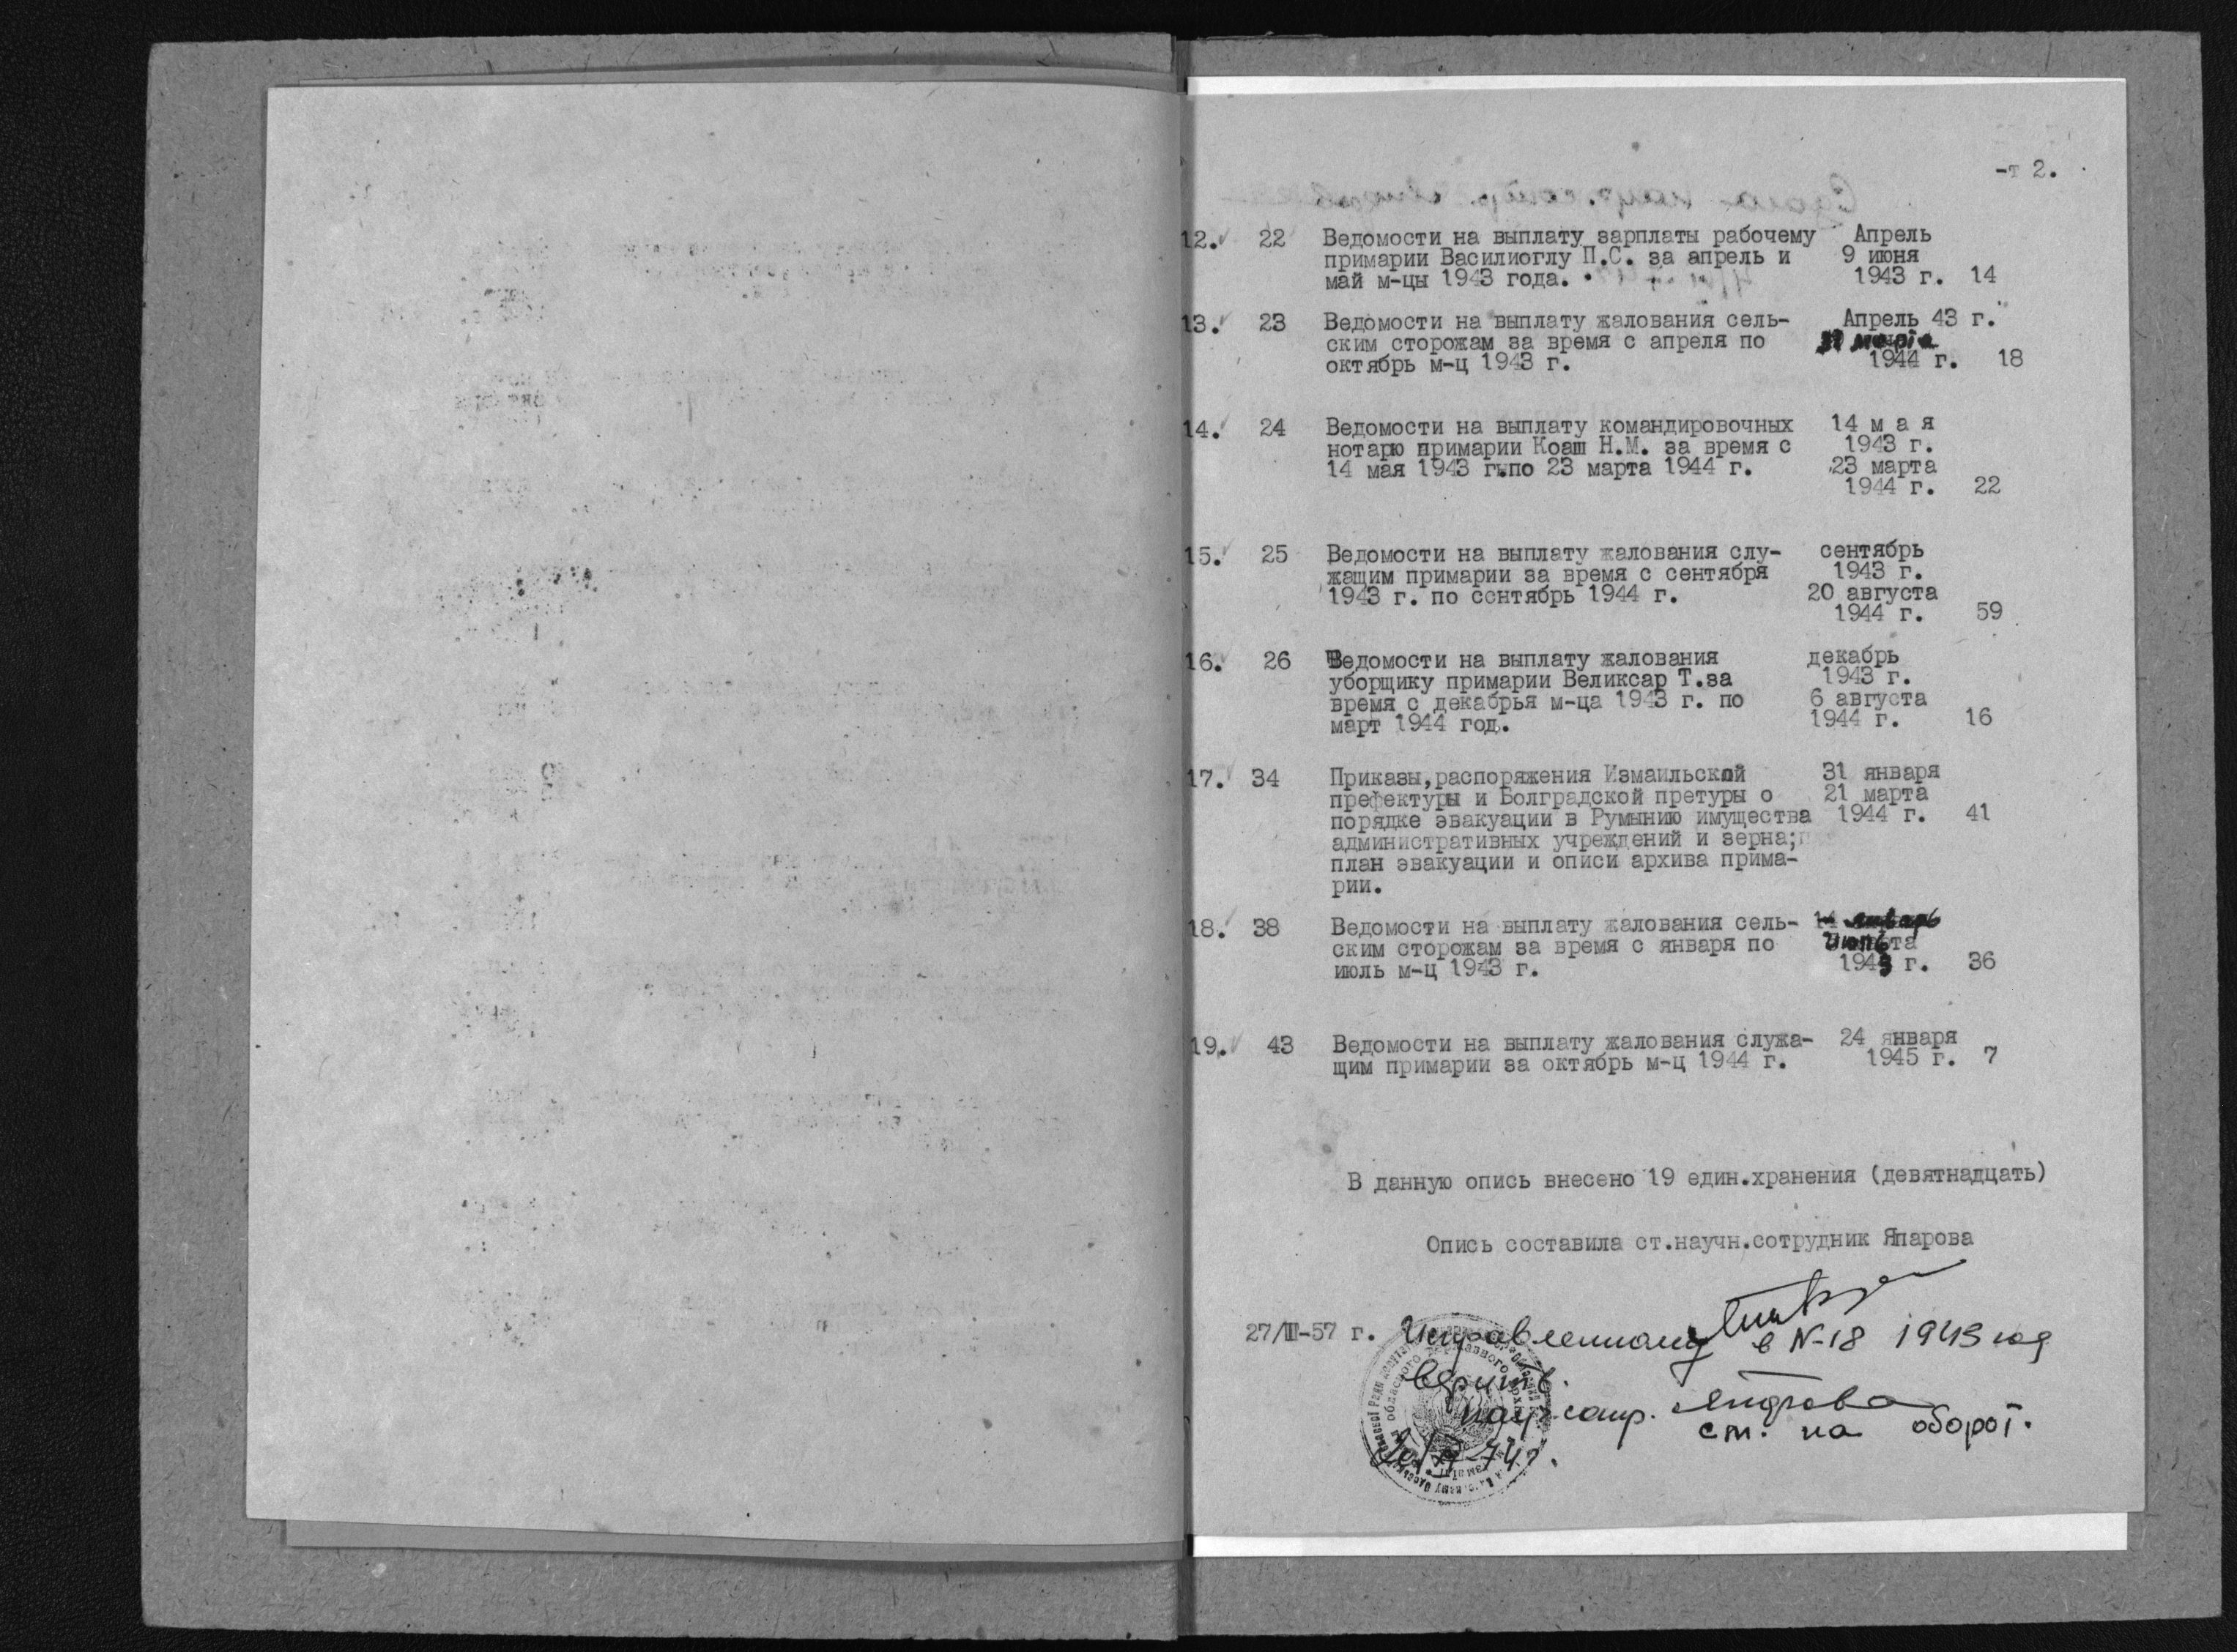 -т 2.
12. 22 Ведомости на выплату зарплаты рабочему Апрель
примарии Василиоглу П.С. за апрель и 9 июня
май м-цы 1943 года. 1943 г. 14
13. 23 Ведомости на выплату жалования сель- Апрель 43 г.
ским сторожам за время с апреля по марта
октябрь м-ц 1943 г. 1944 г. 18
14. 24 Ведомости на выплату командировочных 14 м а я
нотарю примарии Коаш Н.М. за время с 1943 г.
14 мая 1943 г.по 23 марта 1944 г. 23 марта
1944 г. 22
15. 25 Ведомости на выплату жалования слу- сентябрь
жащим примарии за время с сентября 1943 г.
1943 г. по сентябрь 1944 г. 20 августа
1944 г. 59
16. 26 Ведомости на выплату жалования декабрь
уборщику примарии Великсар Т.за 1943 г.
время с декабрья м-ца 1943 г. по 6 августа
март 1944 год. 1944 г. 16
17. 34 Приказы,распоряжения Измаильской 31 января
префектуры и Болградской претуры о 21 марта
порядке эвакуации в Румынию имущества 1944 г. 41
административных учреждений и зерна;
план эвакуации и описи архива прима-
рии.
18. 38 Ведомости на выплату жалования сель- январь
ским сторожам за время с января по июль
июль м-ц 1943 г. 1943 г. 36
19. 43 Ведомости на выплату жалования служа- 24 января
щим примарии за октябрь м-ц 1944 г. 1945 г. 7
В данную опись внесено 19 един.хранения (девятнадцать)
Опись составила ст.научн.сотрудник Япарова
27/III-57 г. Исправленному в N-18 1943 год
верить.
науч.сотр.
см. на оборот.